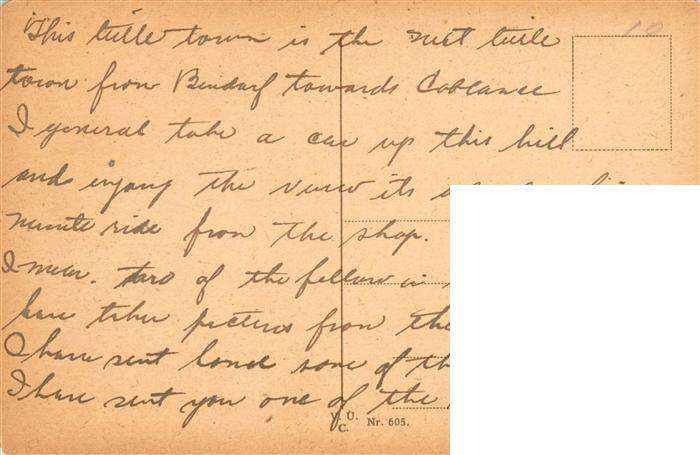 This little town is the next little
town from Bendorf towards Coblance
I general take a car up this hill
and injoay the view its
minute ride from the shop.
I mean. two of the fellow in
have taken pictures from the
I have sent home some of th
I have sent you one of the
V. U.
C. Nr. 605.
10